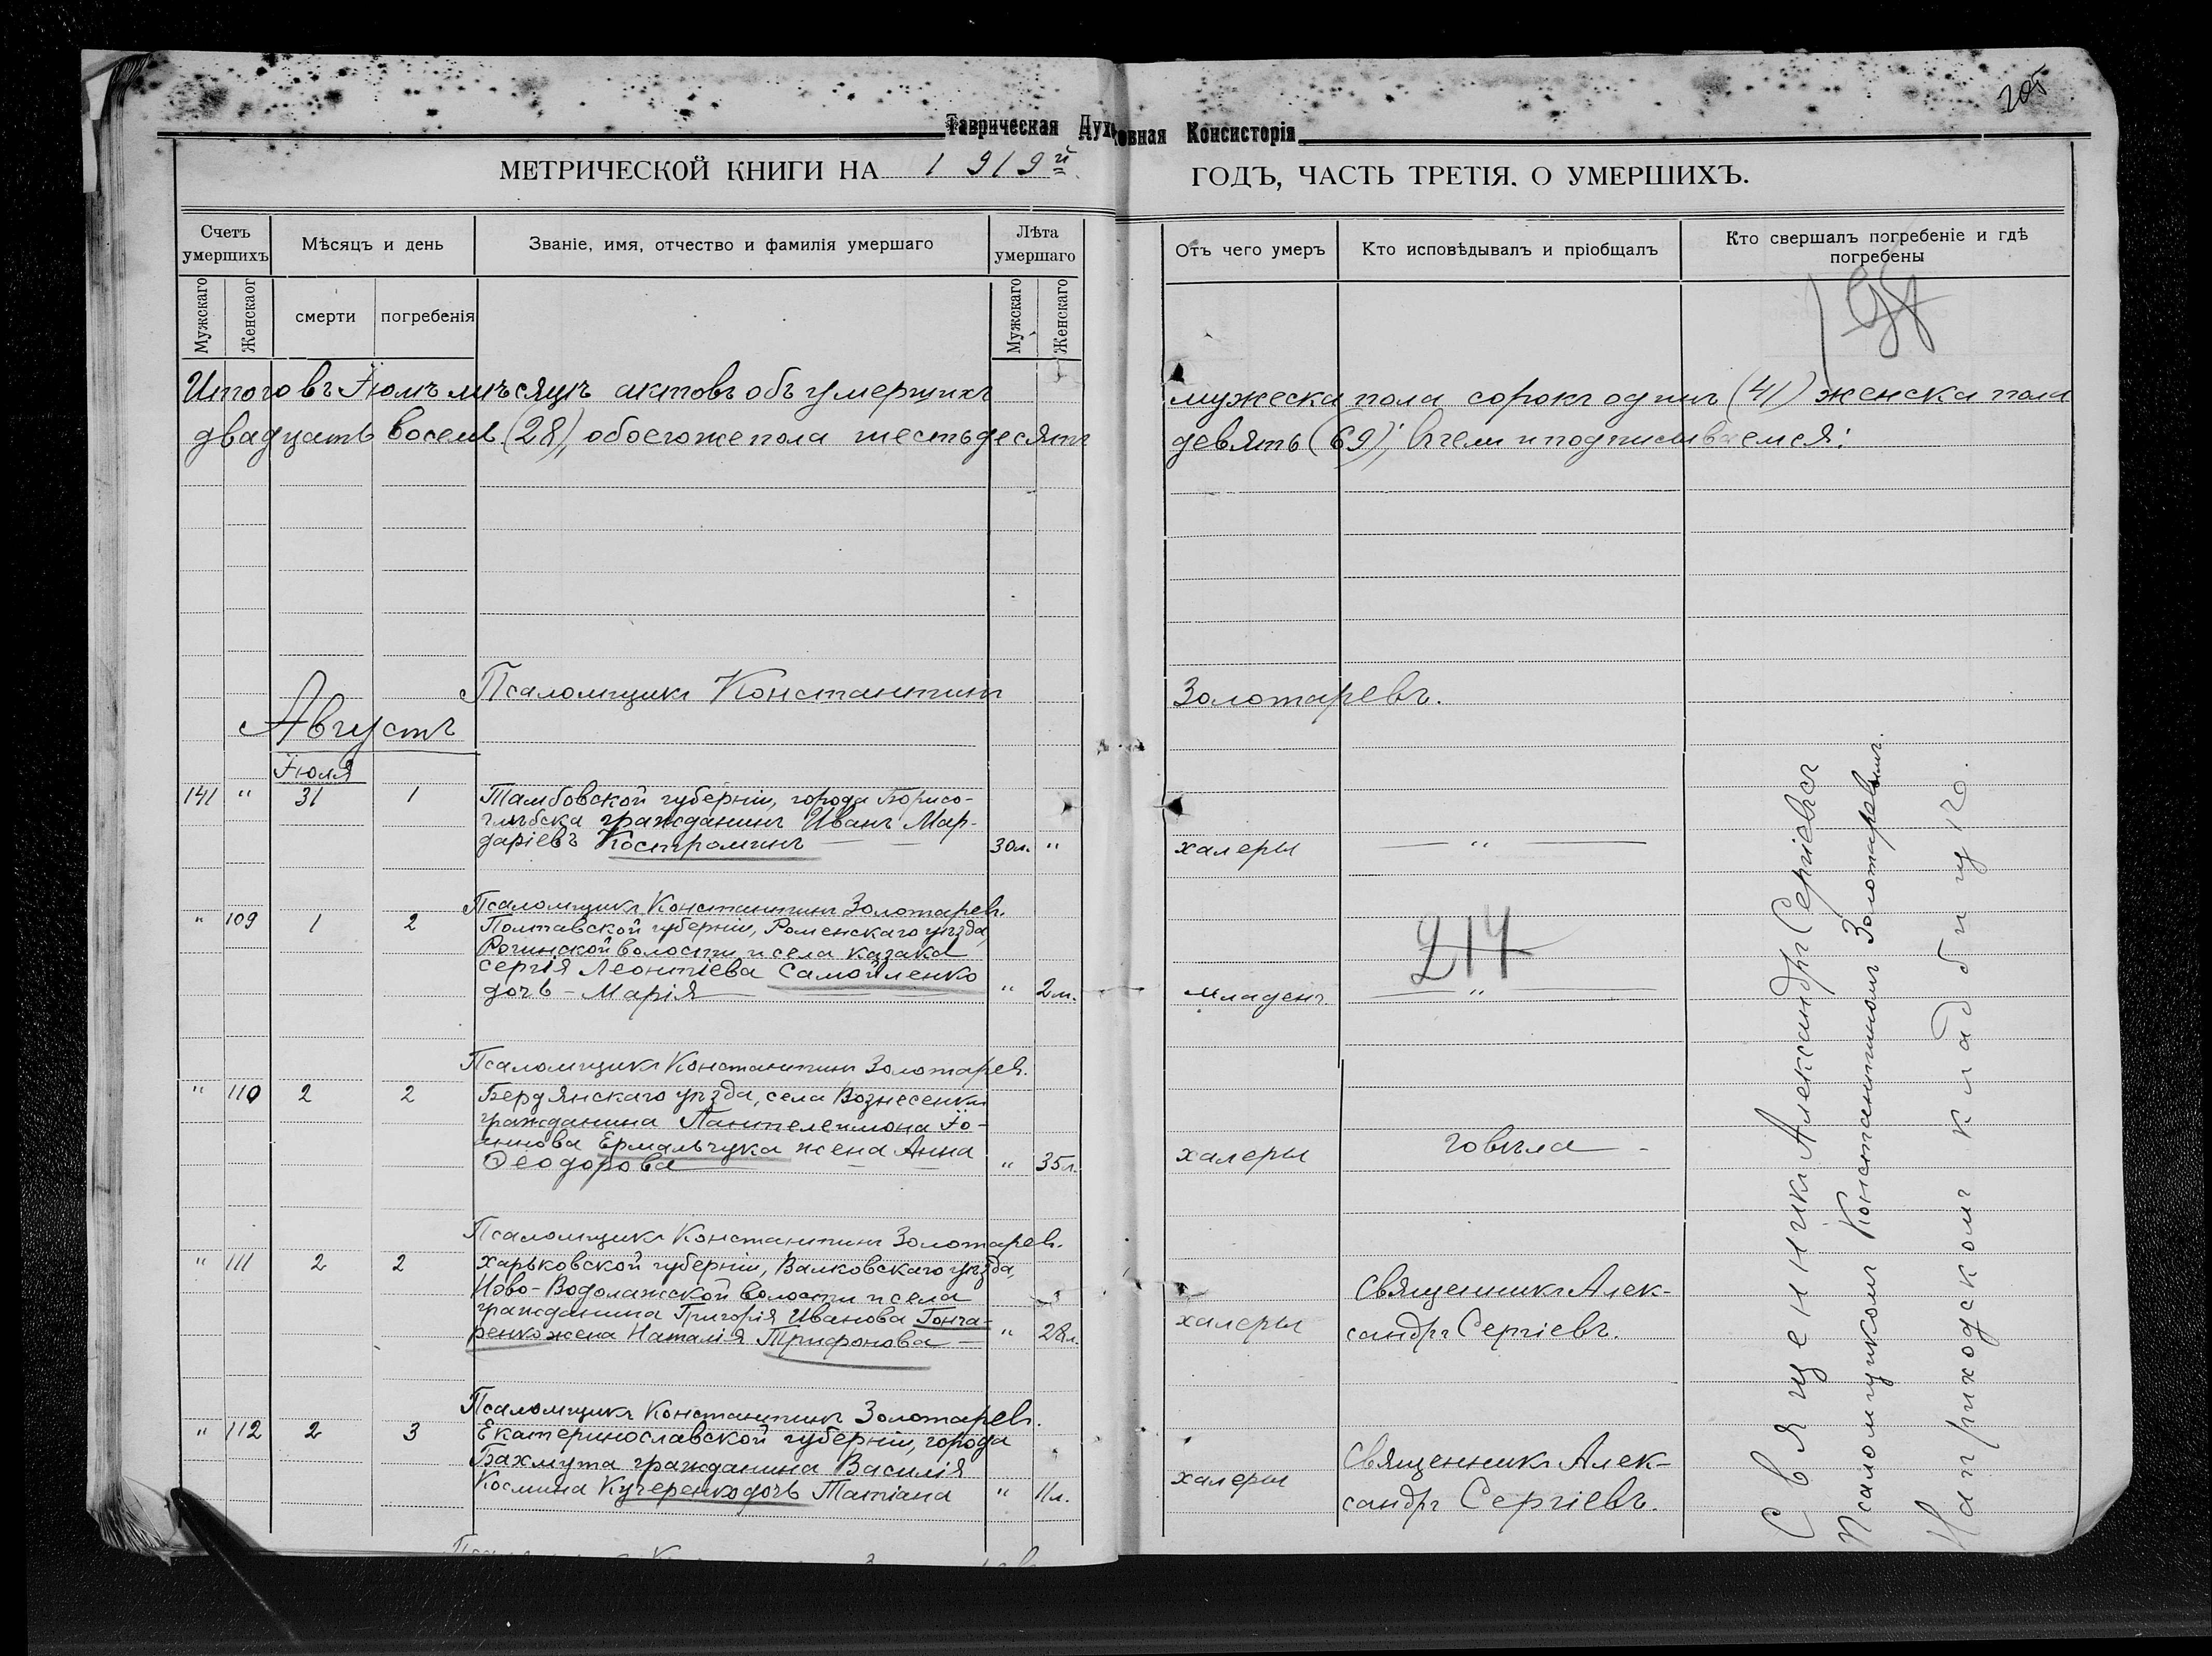 205
Таврическая Духовная Консисторія
МЕТРИЧЕСКОЙ КНИГИ НА 1919й ГОДЪ, ЧАСТЬ ТРЕТІЯ. О УМЕРШИХЪ.
Счетъ умершихъ
Мѣсяцъ и день
Званіе, имя, отчество и фамилія умершаго
Лѣта умершаго
Отъ чего умеръ
Кто исповѣдывалъ и пріобщалъ
Кто свершалъ погребеніе и гдѣ погребены
Мужскаго
Женскаог
смерти
погребенія
Мужскаго
Женскаго
Итого въ Іюлѣ мѣсяцѣ актовъ объ умершихъ мужеска пола сорокъ одинъ (41) женска пола
двадцать восемь (28), обоего же пола шестьдесятъ девять (69); въ чемъ и подписываемся:
Псаломщикъ Константинъ Золотаревъ.
Августъ
Іюля
141 " 31 1 Тамбовской губерніи, города Борисо-
глѣбска гражданинъ Иванъ Мар-
даріевъ Костроминъ 30л. " халеры "
Псаломщикъ Константинъ Золотаревъ.
" 109 1 2 Полтавской губерніи, Роменскаго уѣзда,
Рогинской волости и села казака
Сергія Леонтіева Самойленко
дочь - Марія " 2м. младенч. "
214
Псаломщикъ Константинъ Золотаревъ.
" 110 2 2 Бердянскаго уѣзда, села Вознесенки
гражданина Пантелеимона Іо-
аннова Ермальчука жена Анна
Ѳеодорова " 35л. халеры говѣла
Псаломщикъ Константинъ Золотаревъ.
" 111 2 2 Харьковской губерніи, Валковскаго уѣзда,
Ново-Водолажской волости и села
гражданина Григорія Иванова Гонча-
ренко жена Наталія Трифонова " 28л. халеры Священникъ Алек-
сандръ Сергіевъ.
Псаломщикъ Константинъ Золотаревъ.
" 112 2 3 Екатеринославской губерніи, города
Бахмута гражданина Василія
Космина Кучеренко дочь Татіана " 11л. халеры Священникъ Алек-
сандръ Сергіевъ.
Священникъ Александръ Сергіевъ
Псаломщикомъ Константиномъ Золотаревымъ.
На приходскомъ кладбищѣ.